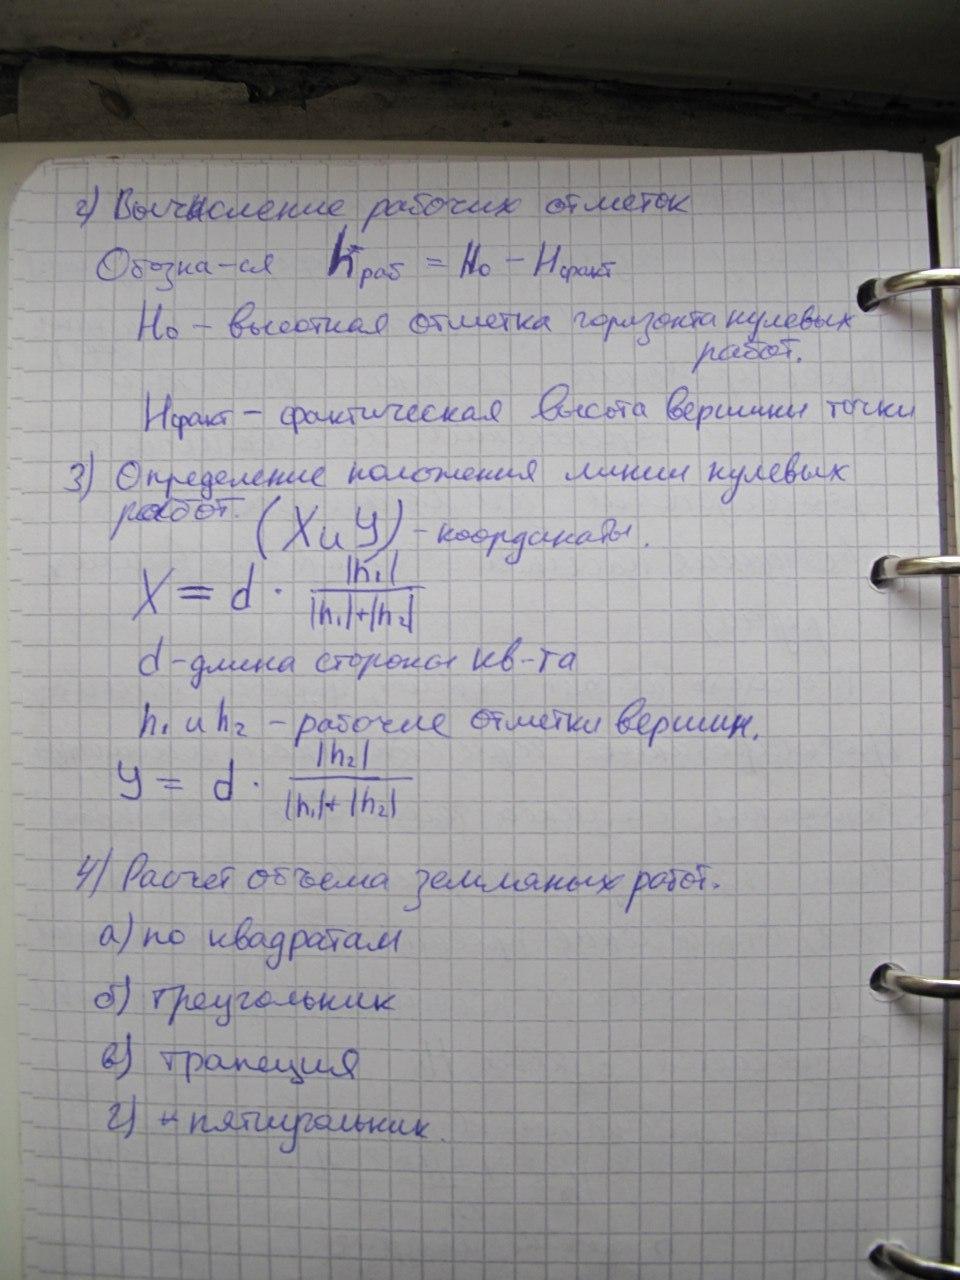 2) Вычисление рабочих отметок
Обозна-ся hраб = H₀ - Hфакт
H₀ - высотная отметка горизонта нулевых
работ.
Hфакт - фактическая высота вершины точки
3) Определение положения линии нулевых
работ. (X и У) - координаты.
X = d · |h₁| / |h₁|+|h₂|
d - длина стороны кв-та
h₁ и h₂ - рабочие отметки вершин.
У = d · |h₂| / |h₁|+|h₂|
4) Расчет объема земляных работ.
а) по квадратам
б) треугольник
в) трапеция
г) - пятиугольник.